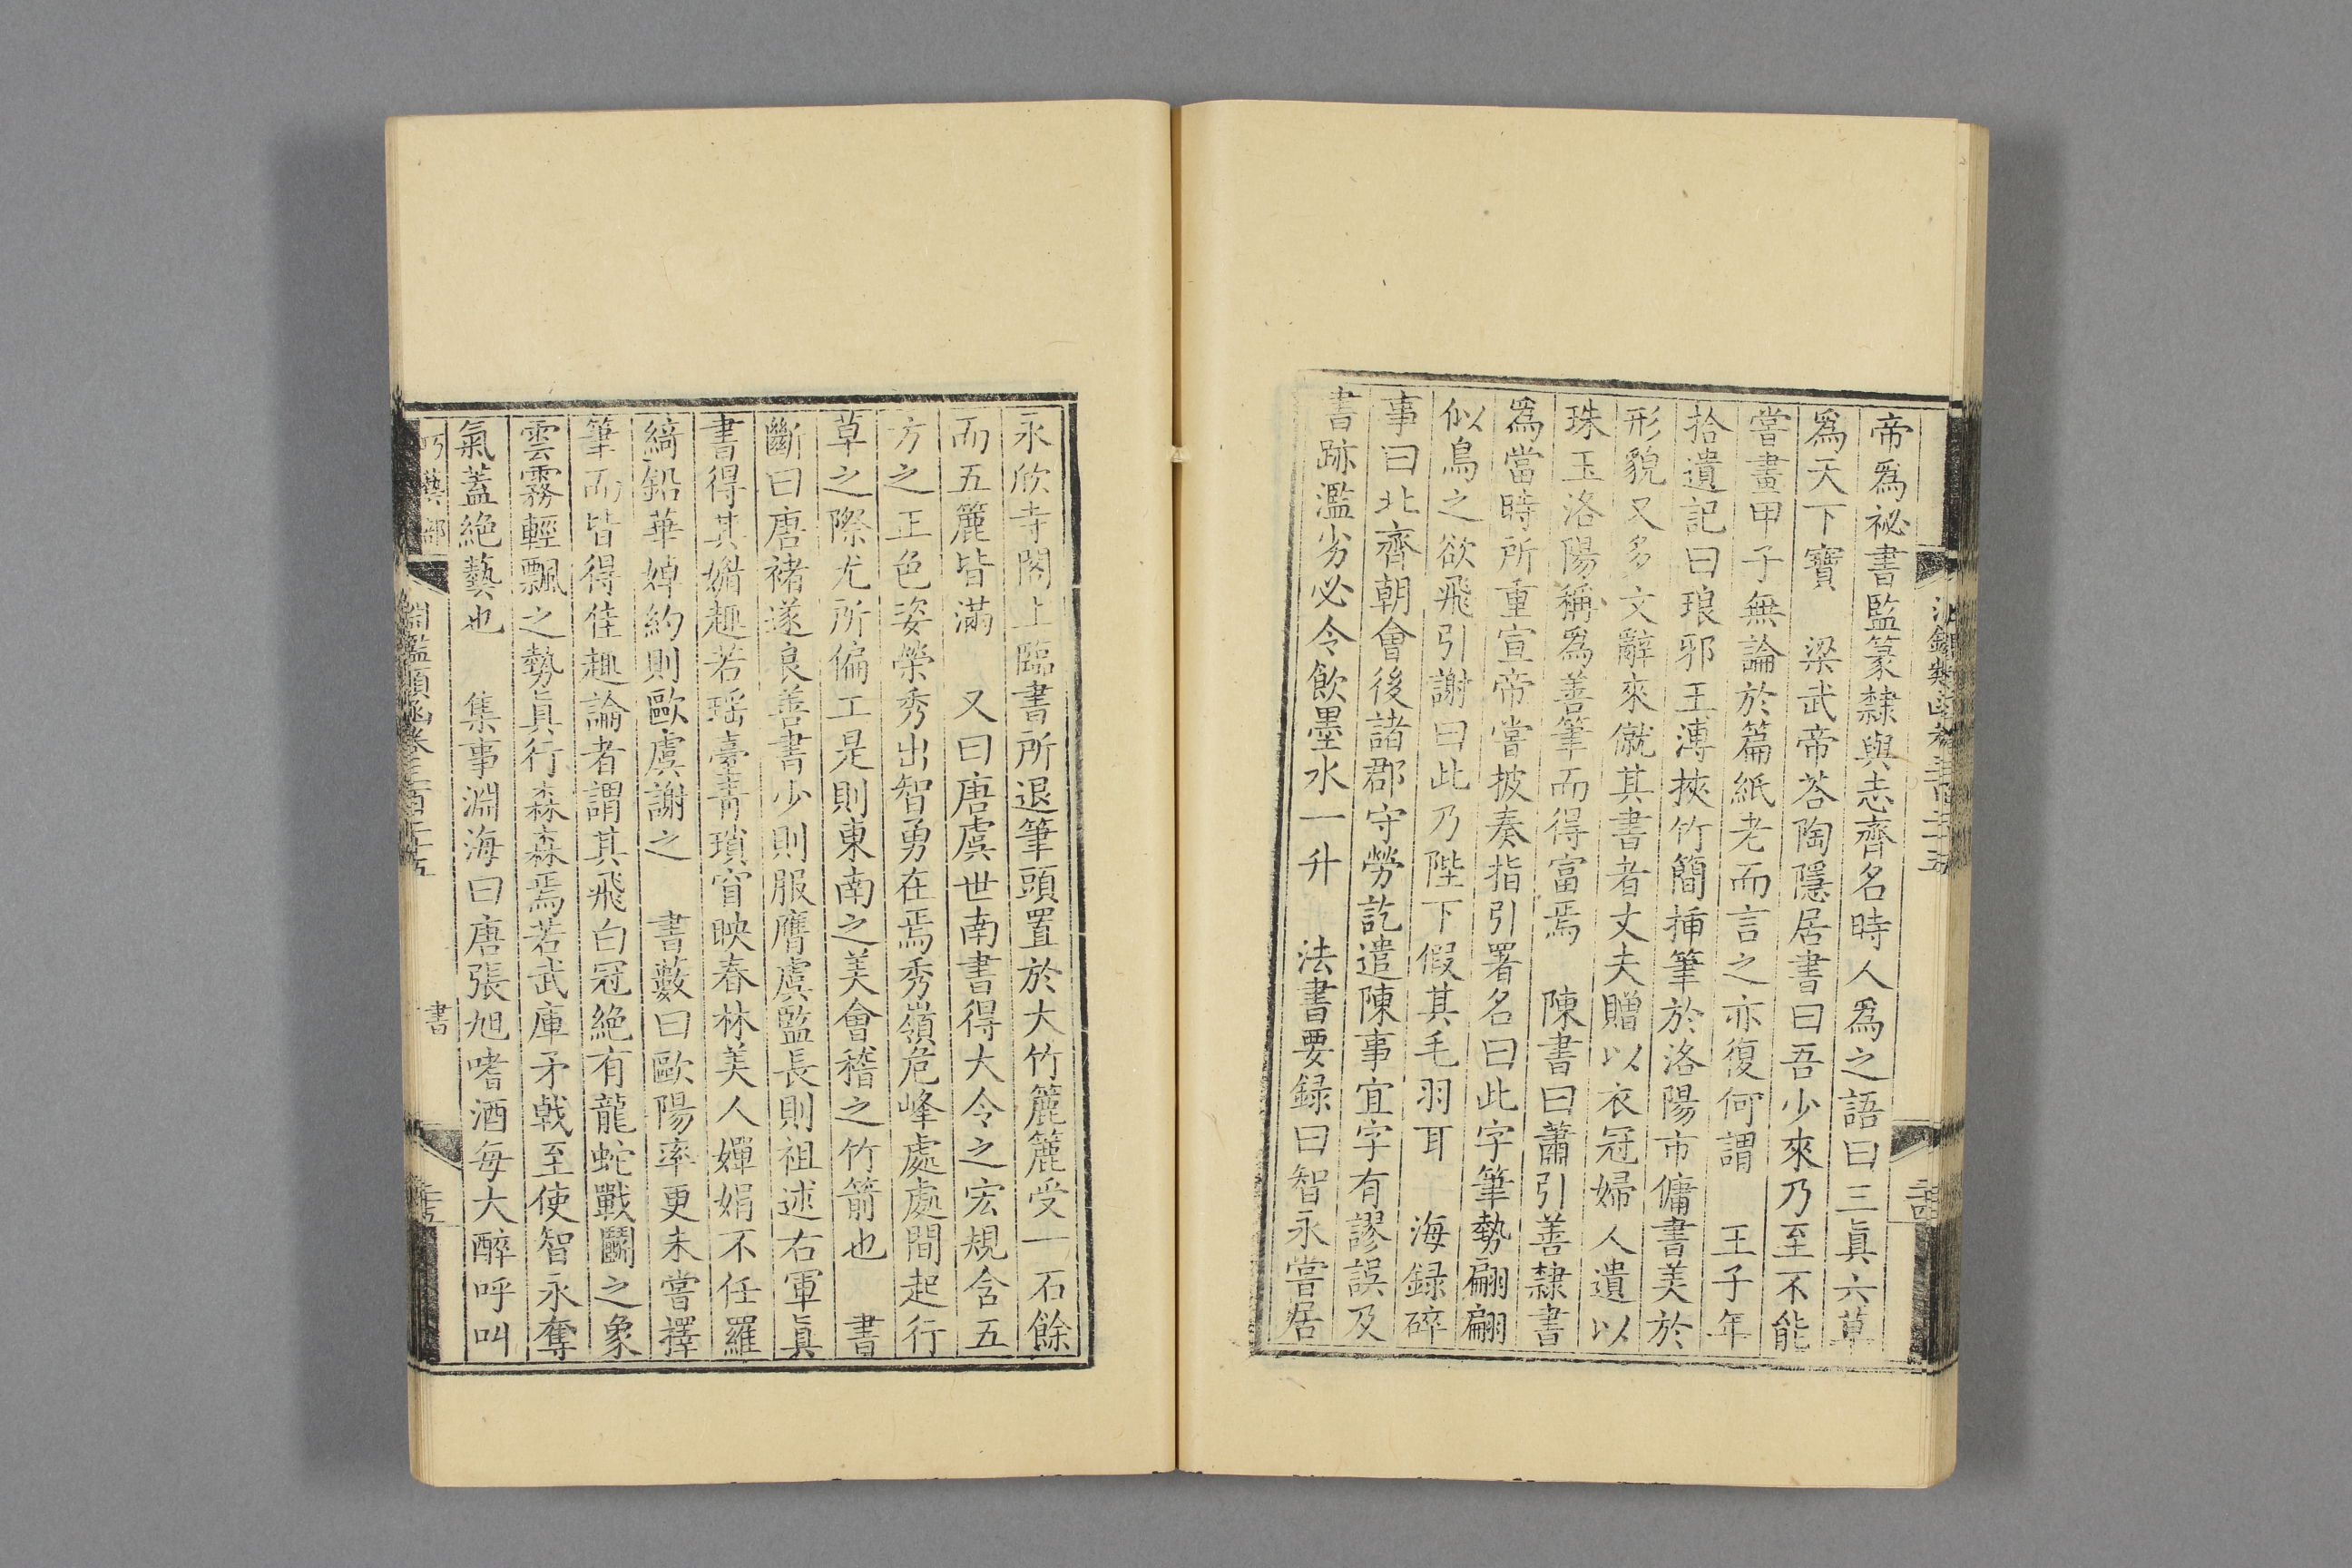 帝爲祕書監篆隸與志齊名時人爲之語曰三眞六草
爲天下寶　梁武帝荅陶隱居書曰吾少來乃至不能
嘗畫甲子無論於篇紙老而言之亦復何謂　王子年
拾遺記曰琅邪王溥挾竹簡揷筆於洛陽市傭書美於
形貌又多文辭來僦其書者丈夫贈以衣冠婦人遺以
珠玉洛陽稱爲善筆而得富焉　陳書曰蕭引善隸書
爲當時所重宣帝嘗披奏指引署名曰此字筆勢翩翩
似鳥之欲飛引謝曰此乃陛下假其毛羽耳　海録碎
事曰北齊朝會後諸郡守勞訖遣陳事宜字有謬誤及
書跡濫劣必令飲墨水一升　法書要録曰智永嘗居
永欣寺閣上臨書所退筆頭置於大竹簏簏受一石餘
而五簏皆滿　又曰唐虞世南書得大令之宏規含五
方之正色姿榮秀出智勇在焉秀嶺危峰處處間起行
草之際尤所偏工是則東南之美會稽之竹箭也　書
斷曰唐褚遂良善書少則服膺虞監長則祖述右軍眞
書得其媚趣若瑶臺青瑣窅映春林美人嬋娟不任羅
綺鉛華婥約則歐虞謝之　書藪曰歐陽率更未嘗擇
筆而皆得佳趣論者謂其飛白冠絶有龍蛇戰鬭之象
雲霧輕飄之勢眞行森森焉若武庫矛戟至使智永奪
氣蓋絶藝也　集事淵海曰唐張旭嗜酒每大醉呼叫
巧藝部
淵鑑類函卷三百二十五
書